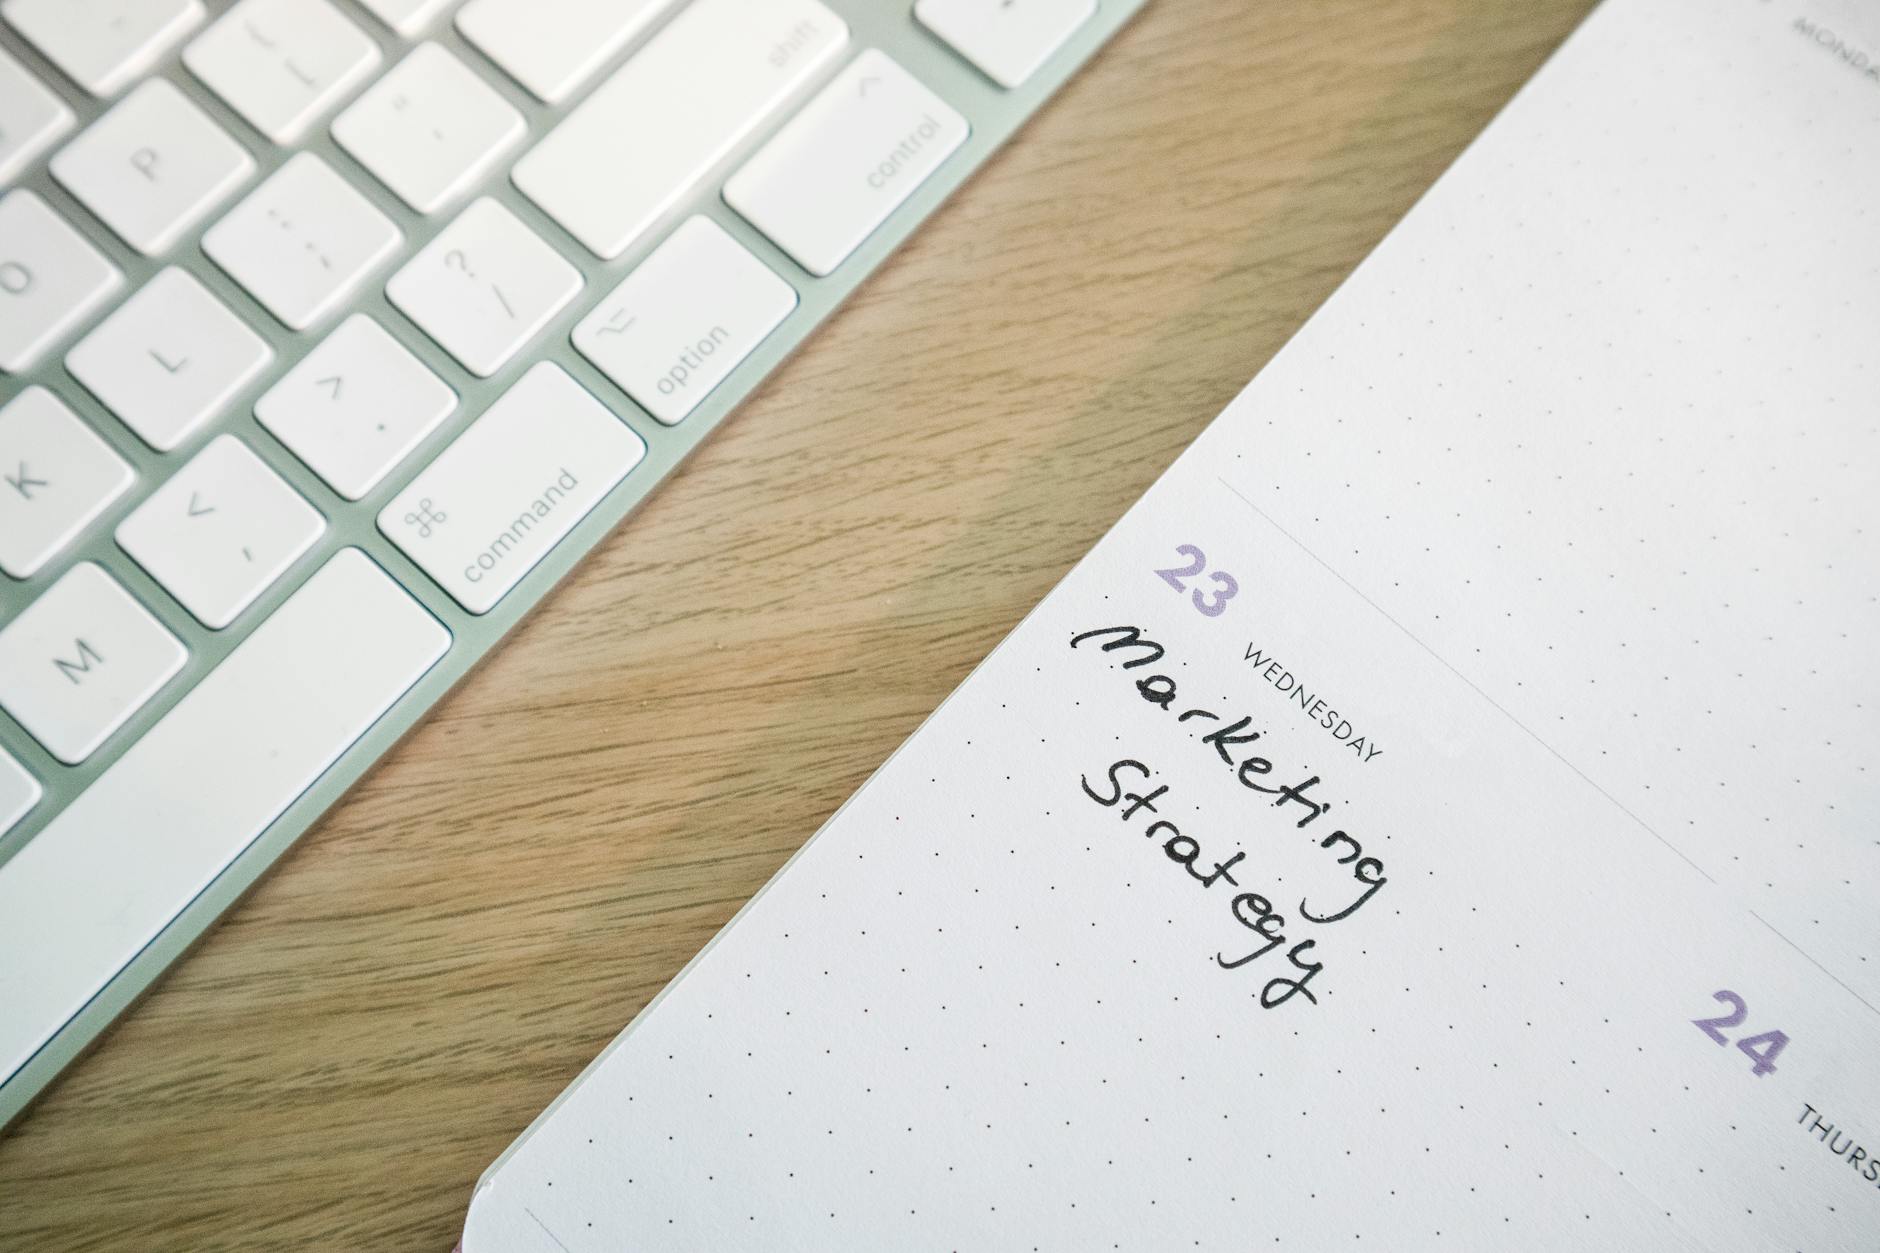 {
[
"
'
shift
^
control
P
:
;
?
/
⌥
option
O
L
>
.
⌘
command
K
<
,
M
23
WEDNESDAY
Marketing
Strategy
24